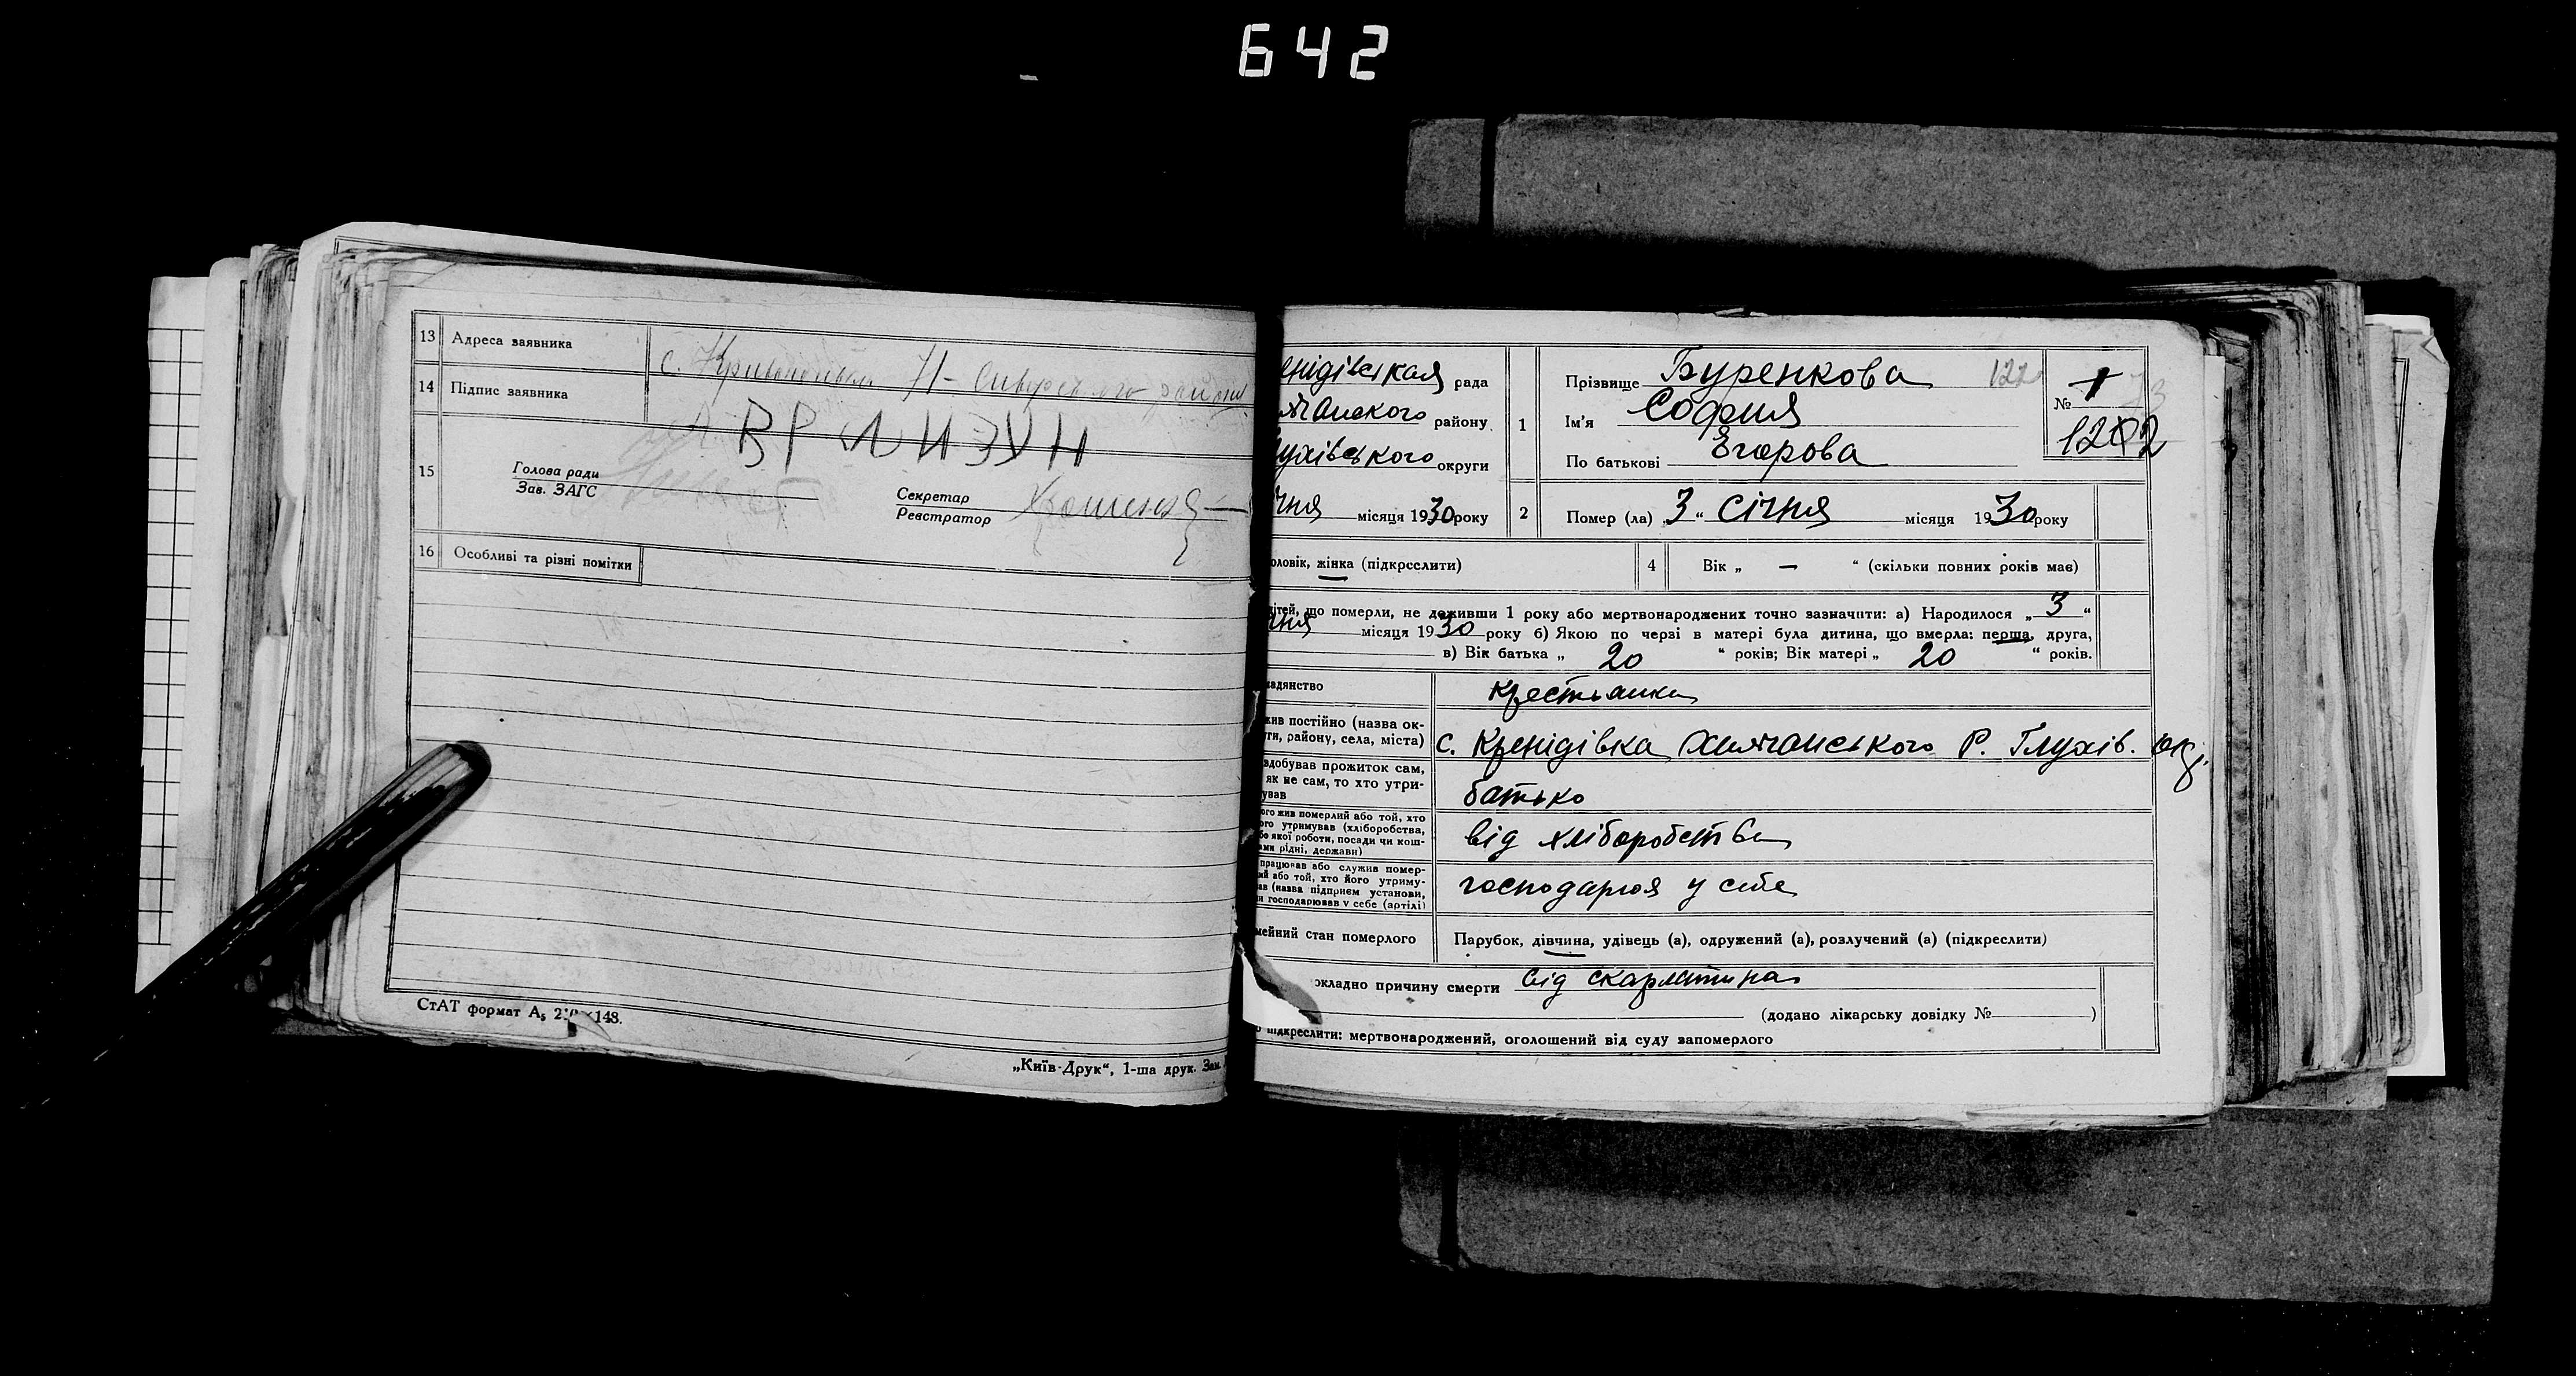 642
13 Адреса заявника с. 
14 Підпис заявника
ВРЛИЗУН
15 Голова ради
Зав. ЗАГС
Секретар
Реєстратор
16 Особливі та різні помітки
СтАТ формат А5 210×148.
„Київ-Друк“, 1-ша друк. Зам.
енідівская рада
району
ухівського округи
ічня місяця 1930 року
1 Прізвище Буренкова 122
Ім'я София
По батькові Егорова
№ 1 73
1202
2 Помер (ла) „3“ Січня місяця 1930 року
оловік, жінка (підкреслити)
4 Вік „ — “ (скільки повних років має)
дітей, що померли, не доживши 1 року або мертвонароджених точно зазначити: а) Народилося „3“
ічня місяця 1930 року б) Якою по черзі в матері була дитина, що вмерла: перша, друга,
в) Вік батька „20“ років; Вік матері „20“ років.
мадянство крестьянка
жив постійно (назва ок-
ги, району, села, міста) с. Кренідівка Хильчанського Р. Глухів. окр.
здобував прожиток сам,
як не сам, то хто утри-
ував батько
ого жив померлий або той, хто
ого утримував (хліборобства,
бо якої роботи, посади чи кош-
ами рідні, держави) від хліборобства
працював або служив помер-
ий або той, хто його утриму-
ав (назва підприєм установи,
и господарював у себе (артілі) господарюя у себе
мейний стан померлого Парубок, дівчина, удівець (а), одружений (а), розлучений (а) (підкреслити)
окладно причину смерти від скарлатина
(додано лікарську довідку № )
о підкреслити: мертвонароджений, оголошений від суду запомерлого